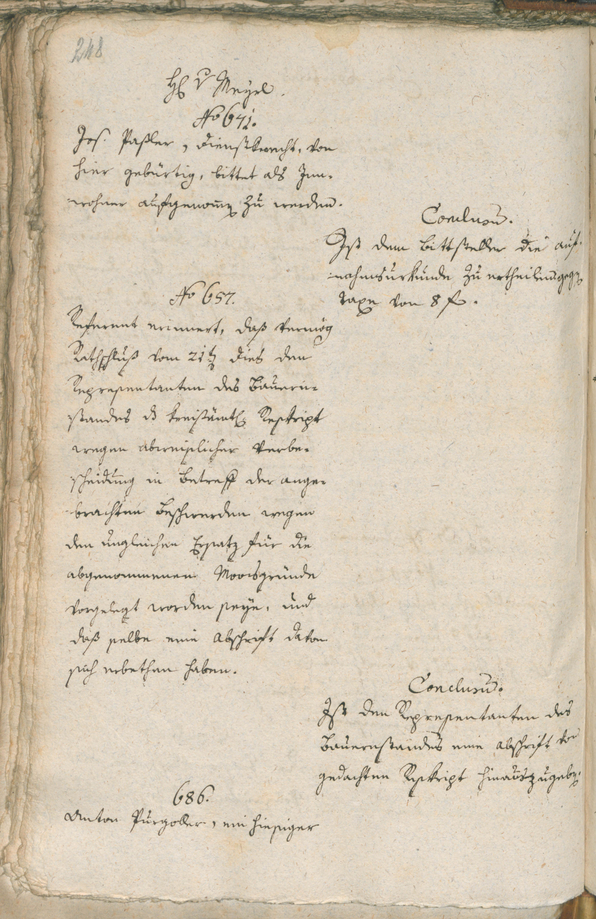 248
H v Mayrl.
No 671.
Jos. Paßler, Dienstknecht, von
hier gebürtig, bittet als Inn-
wohner aufgenom̅en zu werden.
Conclusum.
Ist dem Bittsteller die auf-
nahmsurkunde zu ertheilen gegen
Taxe von 8 f.
No 657.
Referent erinnert, daß vermög
Rathschluß vom 21ten dies den
Repräsentanten des Bauern-
standes das kreisämtl. Reskript
wegen abweislicher Verbe-
scheidung in Betreff der ange-
brachten Beschwerden wegen
den ungleichen Ersatz für die
abgenommenen Moosgründe
vorgelegt worden seye, und
daß selbe eine Abschrift davon
sich erbethen haben.
Conclusum.
Ist den Repräsentanten des
Bauernstandes eine abschrift von
gedachten Reskript hinauszugeben.
686.
Anton Purgoller, ein hiesiger